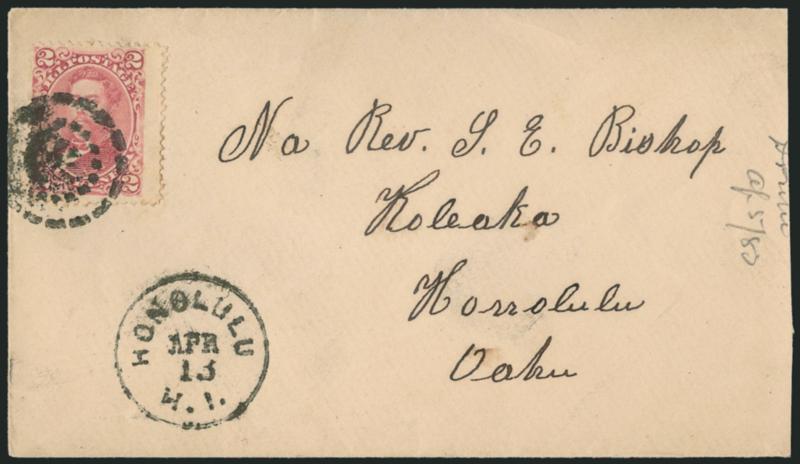 2 H.I. POSTAGE 2
2 2
Na Rev. S. E. Bishop
Koleaka
Honolulu
Oahu
HONOLULU
APR
13
H. I.